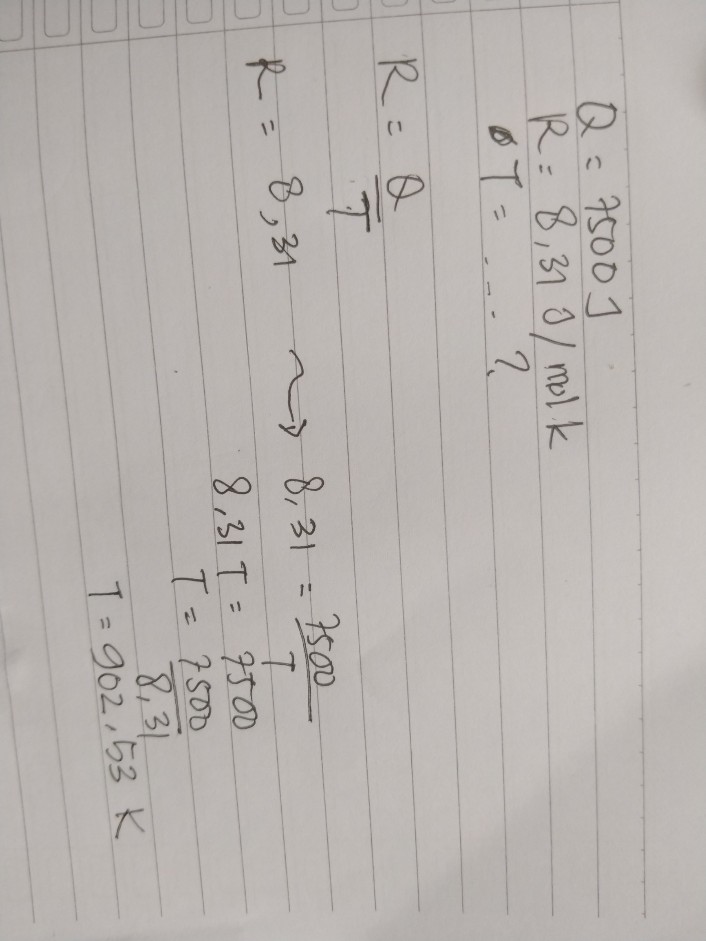 Q = 7500 J
R = 8,31 J/mol K
T = .... ?
R = Q
T
R = 8,31 → 8,31 = 7500
T
8,31 T = 7500
T = 7500
8,31
T = 902,53 K